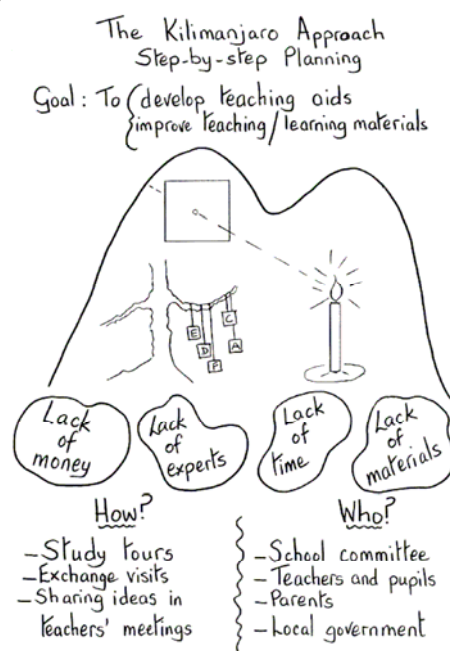 The Kilimanjaro Approach
Step-by-step Planning
Goal: To develop teaching aids
improve teaching/learning materials
E
D
F
C
A
Lack of money
Lack of experts
Lack of time
Lack of materials
How?
- Study tours
- Exchange visits
- Sharing ideas in
teachers' meetings
Who?
- School committee
- Teachers and pupils
- Parents
- Local government